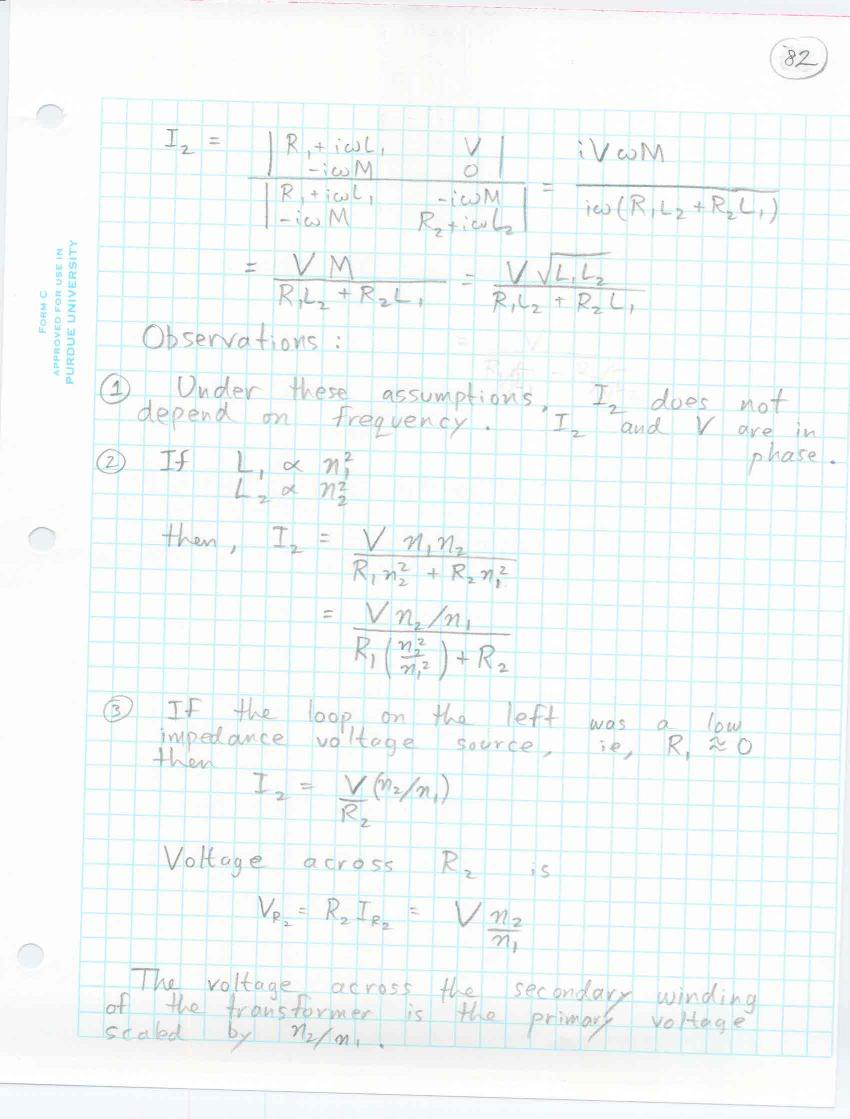 82
I₂ = | R₁ + iωL₁   V |
| -iωM   0 |
| R₁ + iωL₁   -iωM |
| -iωM   R₂ + iωL₂ |
= iVωM / iω(R₁L₂ + R₂L₁)
= V M / R₁L₂ + R₂L₁ = V √L₁L₂ / R₁L₂ + R₂L₁
FORM C
APPROVED FOR USE IN
PURDUE UNIVERSITY
Observations :
① Under these assumptions, I₂ does not
depend on frequency. I₂ and V are in
phase.
② If L₁ ∝ n₁²
L₂ ∝ n₂²
then, I₂ = V n₁n₂ / R₁n₂² + R₂n₁²
= V n₂/n₁ / R₁ (n₂²/n₁²) + R₂
③ If the loop on the left was a low
impedance voltage source, ie, R₁ ≈ 0
then
I₂ = V/R₂ (n₂/n₁)
Voltage across R₂ is
V_R₂ = R₂ I_R₂ = V n₂/n₁
The voltage across the secondary winding
of the transformer is the primary voltage
scaled by n₂/n₁.